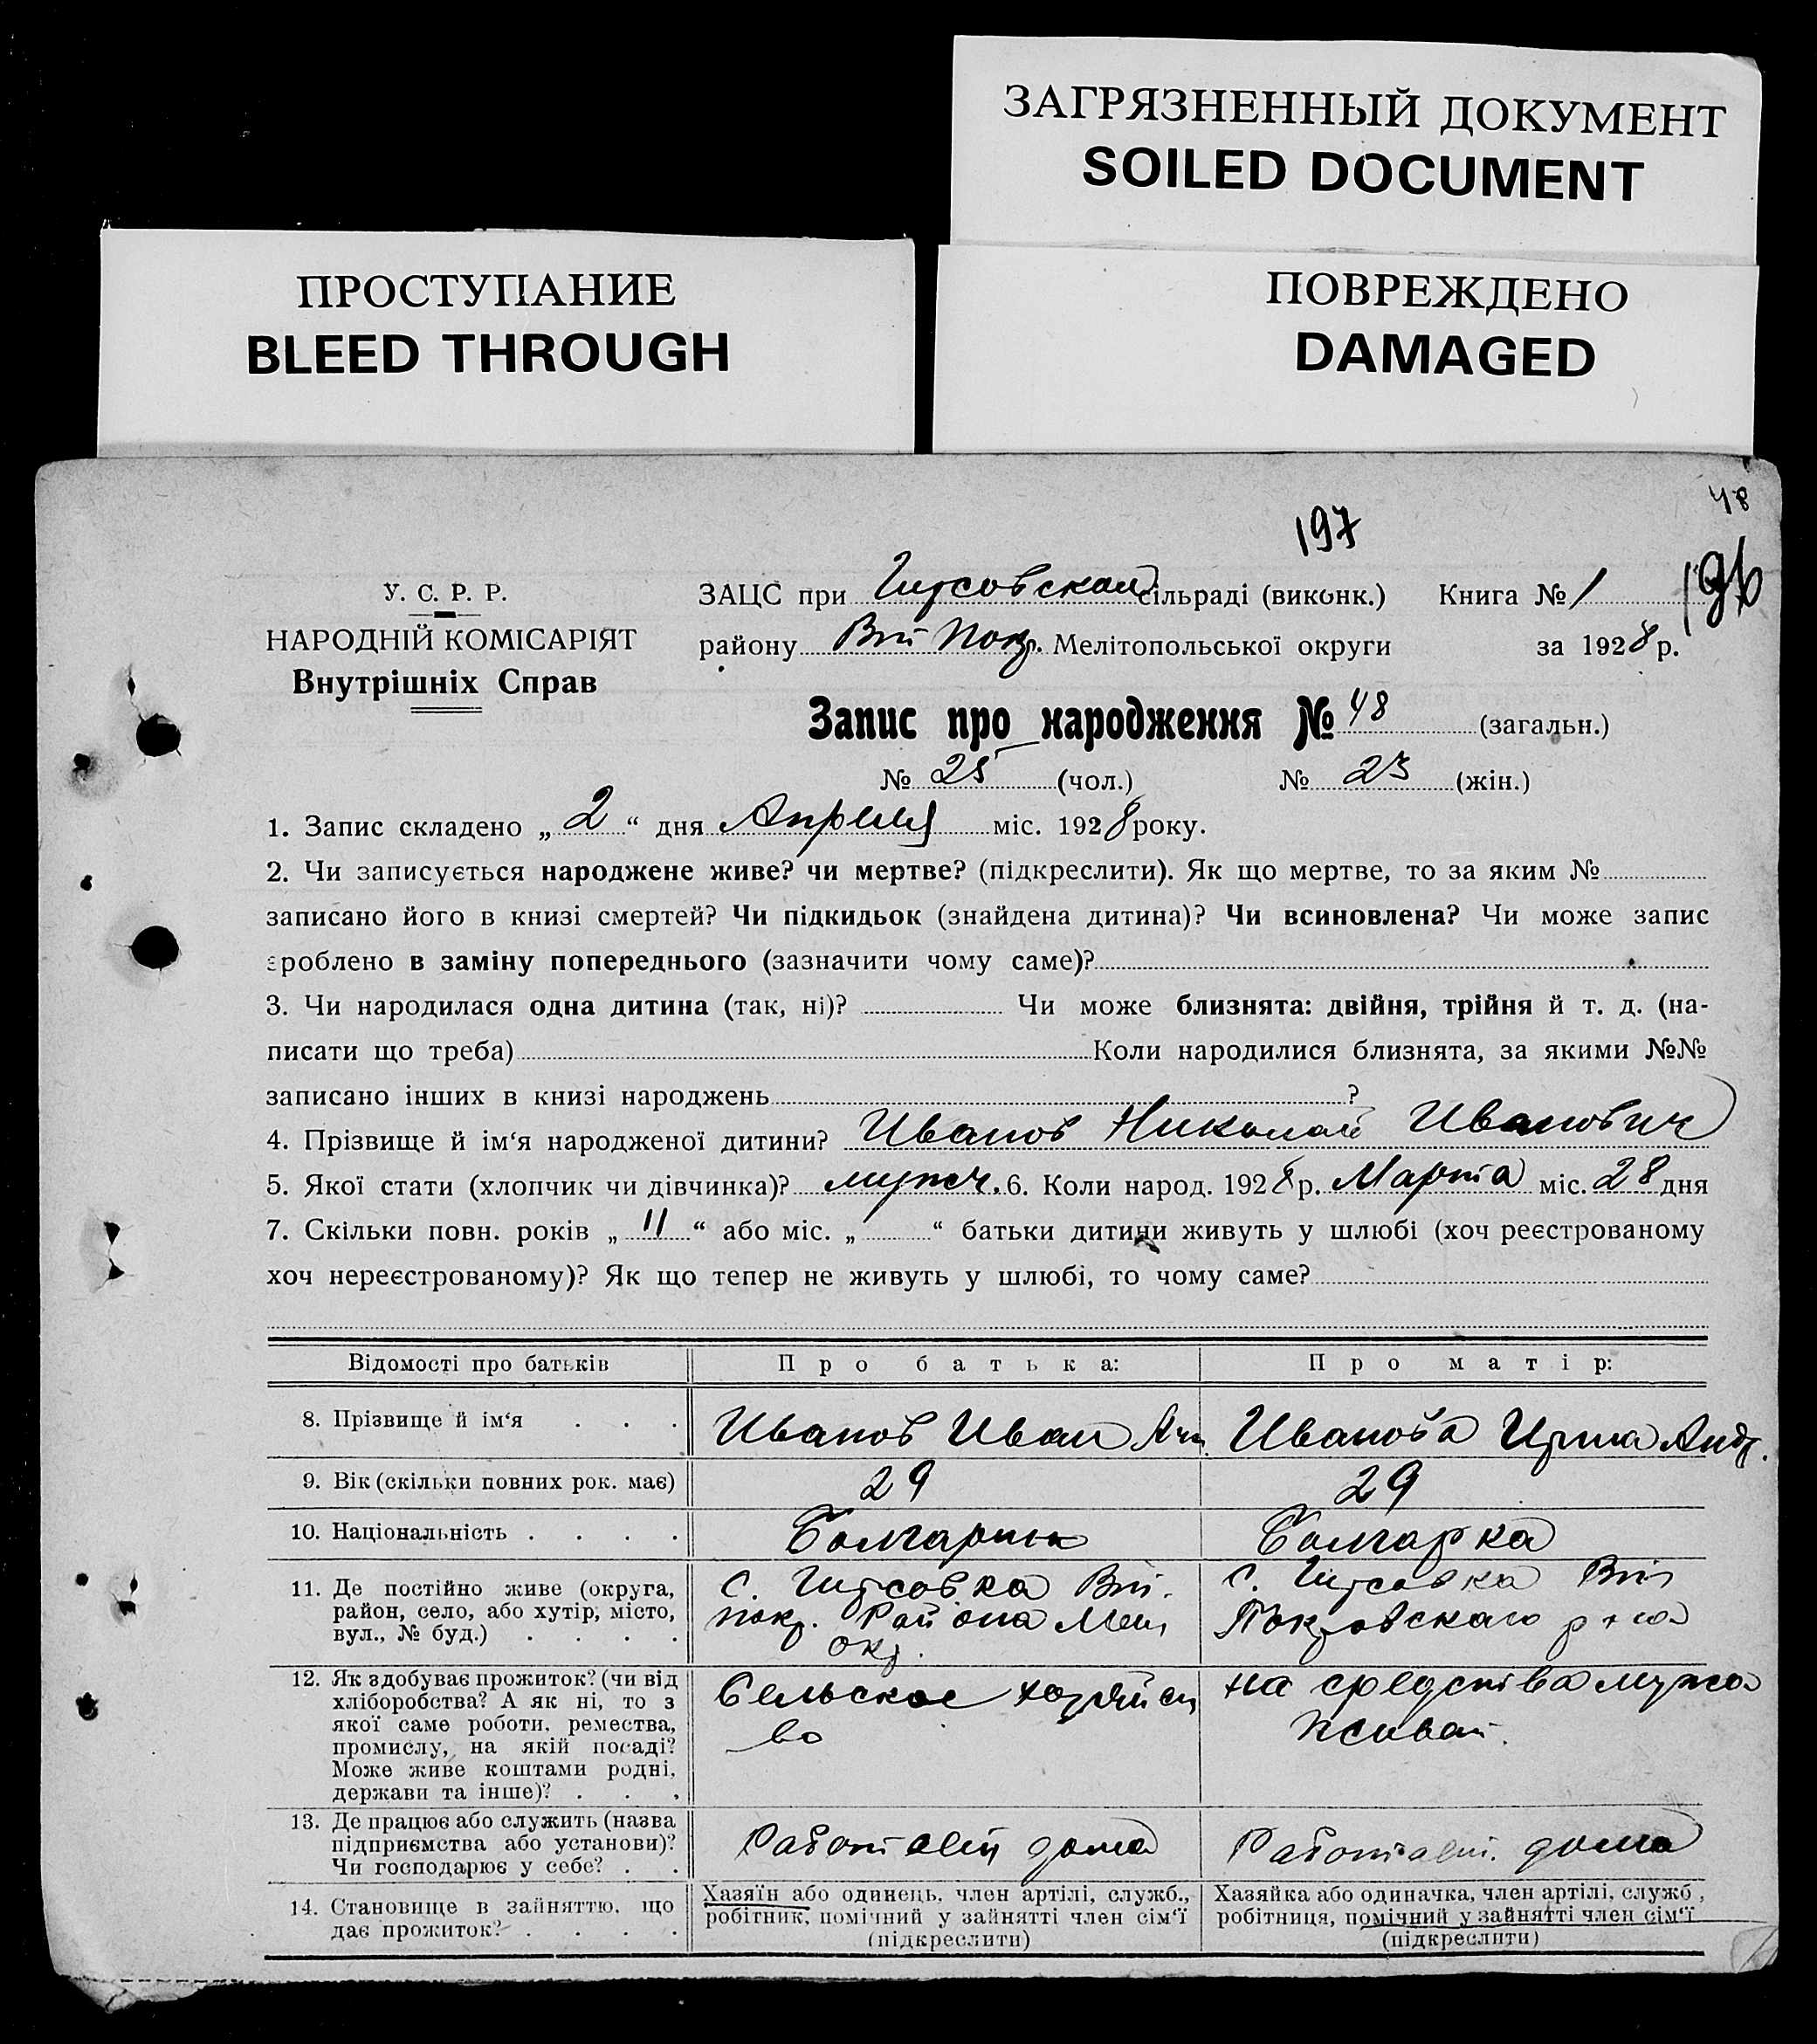 ЗАГРЯЗНЕННЫЙ ДОКУМЕНТ
SOILED DOCUMENT
ПРОСТУПАНИЕ
BLEED THROUGH
ПОВРЕЖДЕНО
DAMAGED
48
197
196
У. С. Р. Р.
НАРОДНІЙ КОМІСАРІЯТ
Внутрішніх Справ
ЗАЦС при Гирсовском сільраді (виконк.) Книга № 1
району Вт Покр. Мелітопольської округи за 1928 р.
Запис про народження № 48 (загальн.)
№ 25 (чол.) № 23 (жін.)
1. Запис складено „ 2 “ дня Апреля міс. 1928 року.
2. Чи записується народжене живе? чи мертве? (підкреслити). Як що мертве, то за яким №
записано його в книзі смертей? Чи підкидьок (знайдена дитина)? Чи всиновлена? Чи може запис
зроблено в заміну попереднього (зазначити чому саме)?
3. Чи народилася одна дитина (так, ні)? Чи може близнята: двійня, трійня й т. д. (на-
писати що треба) Коли народилися близнята, за якими №№
записано інших в книзі народжень ?
4. Прізвище й ім‘я народженої дитини? Иванов Николай Иванович
5. Якої стати (хлопчик чи дівчинка)? мужч. 6. Коли народ. 1928 р. Марта міс. 28 дня
7. Скільки повн. років „ 11 “ або міс. „ “ батьки дитини живуть у шлюбі (хоч реєстрованому
хоч нереєстрованому)? Як що тепер не живуть у шлюбі, то чому саме?
Відомості про батьків Про батька: Про матір:
8. Прізвище й ім‘я . . . Иванов Иван Иванова Ирина Андр.
9. Вік (скільки повних рок. має) 29 29
10. Національність . . . . Болгарин Болгарка
11. Де постійно живе (округа,
район, село, або хутір, місто,
вул., № буд.) . . . .
с. Гирсовка Вт.
покр. Района Мел.
окр.
с. Гирсовка Вт
Покровскаго р-на
12. Як здобуває прожиток? (чи від
хліборобства? А як ні, то з
якої саме роботи, ремества,
промислу, на якій посаді?
Може живе коштами родні,
держави та інше)? . . .
Сельское хозяйст
во
на средства мужа
живет.
13. Де працює або служить (назва
підприємства або установи)?
Чи господарює у себе? . .
Работает дома
Работает. дома
14. Становище в зайняттю, що
дає прожиток? . . . .
Хазяїн або одинець, член артілі, служб.,
робітник, помічний у зайнятті член сім‘ї
(підкреслити)
Хазяйка або одиначка, член артілі, служб.,
робітниця, помічний у зайнятті член сім‘ї
(підкреслити)